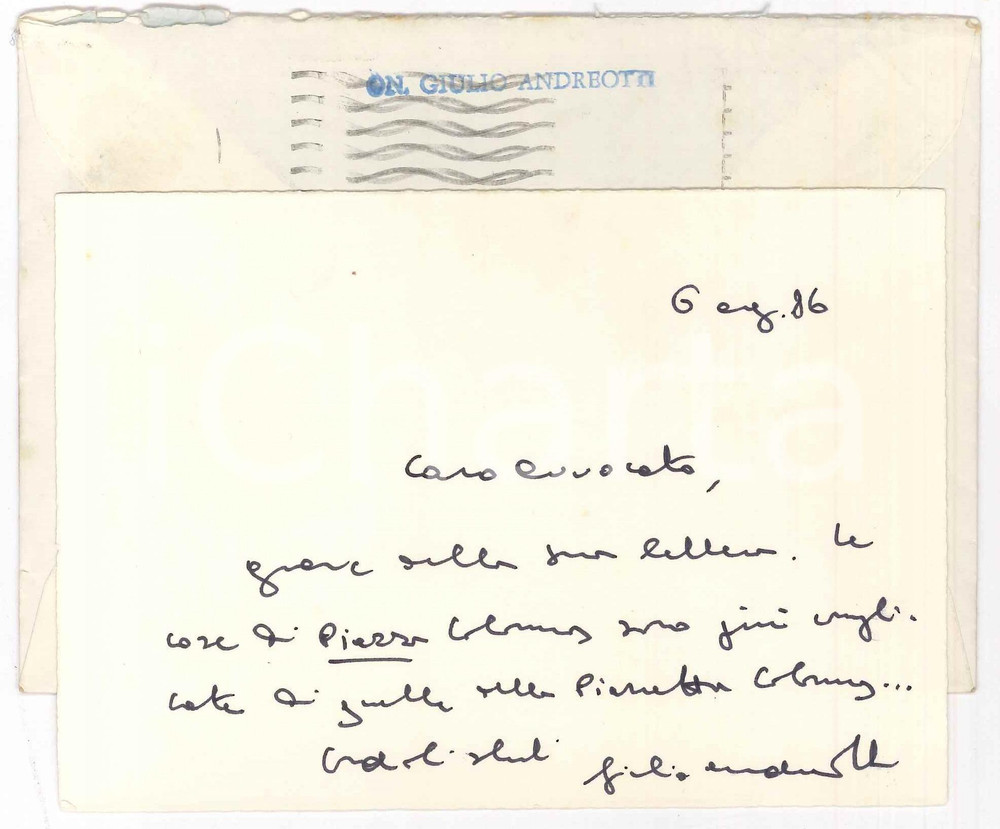 ON. GIULIO ANDREOTTI
iCharta
6 ag. 86
Caro Avvocato,
grazie della sua lettera. Le
cose di Piazza Colonna sono più
di quelle della Piazzetta Colonna...
Cordiali saluti Giulio Andreotti